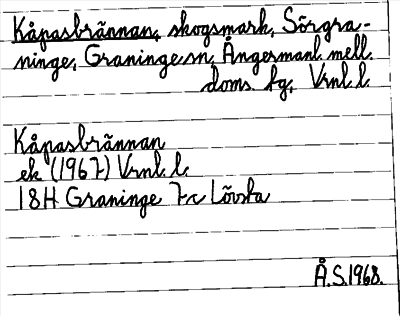 Kåpasbrännan, skogsmark, Sörgra-
ninge, Graninge sn, Ångermanl. mell.
doms. fg, Vrnl. l.
Kåpasbrännan
ek (1967) Vrnl. l.
18H Graninge 7c Lövsta
Å.S. 1968.